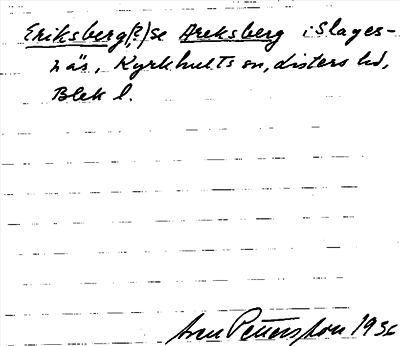 Eriksberg(?) se Areksberg i Slages-
näs, Kyrkhults sn, Listers hd,
Blek l.
Arne Pettersson 1936